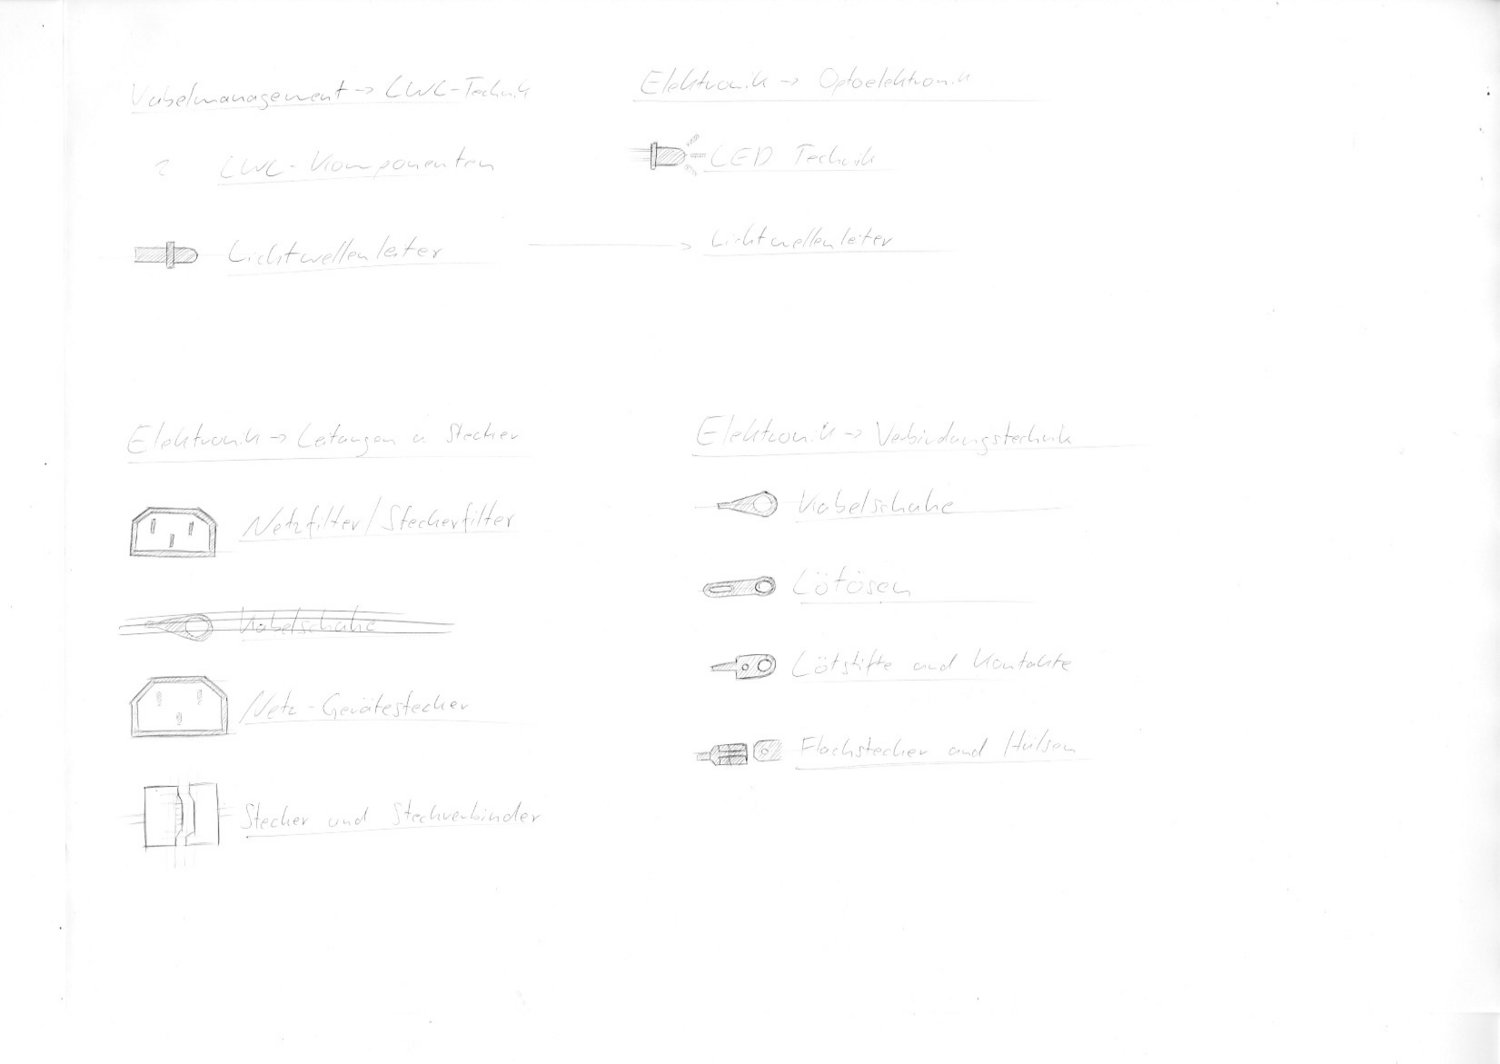 Kabelmanagement → LWL-Technik
? LWL-Komponenten
Lichtwellenleiter
Elektronik → Optoelektronik
LED Technik
Lichtwellenleiter
Elektronik → Leitungen u Stecker
Netzfilter/Steckerfilter
Kabelschuhe
Netz-Gerätestecker
Stecker und Steckverbinder
Elektronik → Verbindungstechnik
Kabelschuhe
Lötösen
Lötstifte und Kontakte
Flachstecker und Hülsen